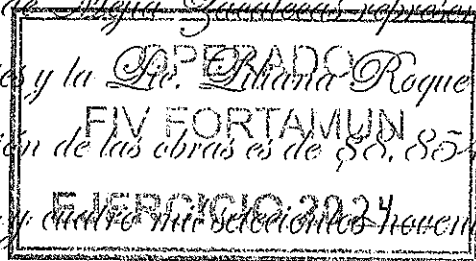 de Mejía Zacatecas
OPERADO
es y la Lic. Liliana Roque
FIV FORTAMUN
ón de las obras es de $8,85
EJERCICIO 2024
y cuatro mil setecientos noven